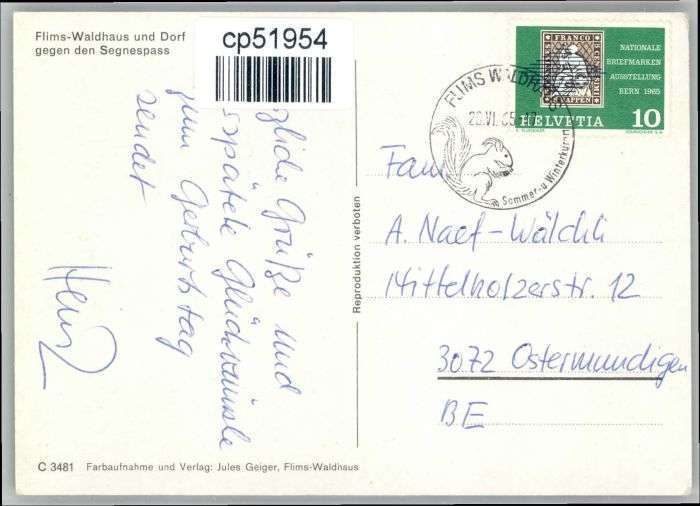 Flims-Waldhaus und Dorf
gegen den Segnespass
cp51954
zliche Grüße und
spätete Glückwünsche
zum Geburtstag
sendet
Heinz
Reproduktion verboten
FLIMS WALDHAUS
28.VI.65
Sommer- u Winterkurort
FRANCO
RAPPEN
NATIONALE
BRIEFMARKEN
AUSSTELLUNG
BERN 1965
HELVETIA 10
Fam
A. Naef-Wälchli
Mittelholzerstr. 12
3072 Ostermundigen
BE
C 3481 Farbaufnahme und Verlag: Jules Geiger, Flims-Waldhaus